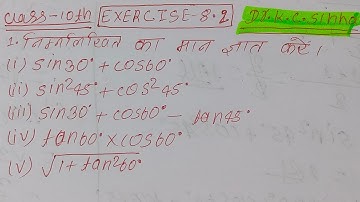 class-10th EXERCISE-8.2 Dr. K.C. Sinha
1. निम्नलिखित का मान ज्ञात करें।
(i) sin30° + cos60°
(ii) sin²45° + cos²45°
(iii) sin30° + cos60° - tan45°
(iv) tan60° × cos60°
(v) √1 + tan²60°